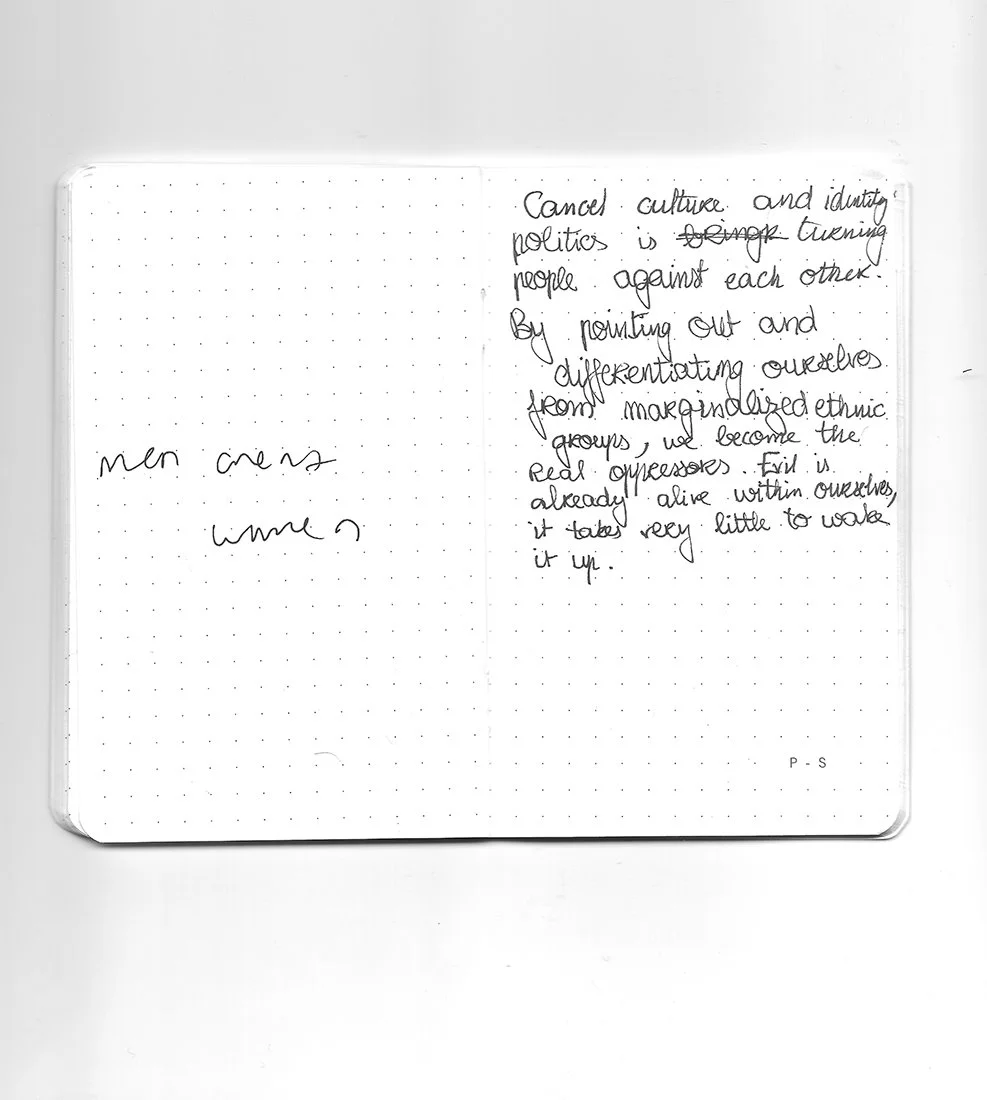 men
women
Cancel culture and identity
politics is turning
people against each other.
By pointing out and
differentiating ourselves
from marginalized ethnic
groups, we become the
real oppressors. Evil is
already alive within ourselves,
it takes very little to wake
it up.
P - S